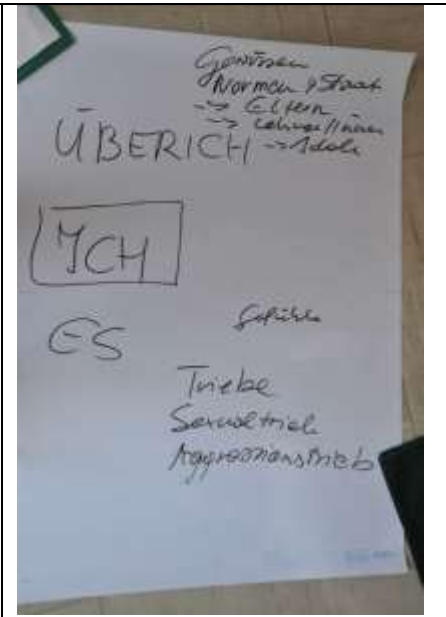 Gewissen
Normen & Staat
--> Eltern
--> Lehrer/innen
ÜBERICH --> Idole
ICH
ES
Gefühle
Triebe
Sexualtrieb
Aggressionstrieb